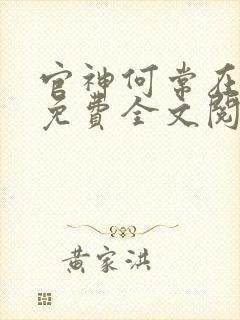 官神何常在
免費全文閱
黃家洪